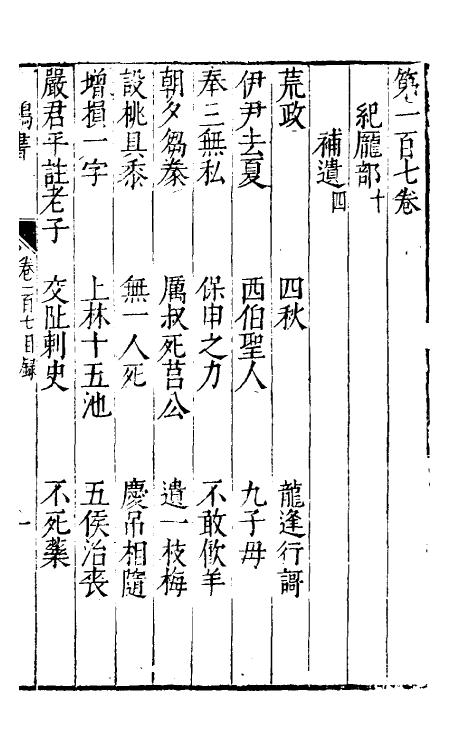 第一百七卷
紀龐部十
補遺四
荒政 四秋 龍逢行謌
伊尹去夏 西伯聖人 九子母
奉三無私 保申之力 不敢飲羊
朝夕芻豢 厲叔死莒公 遺一枝梅
設桃具黍 無一人死 慶吊相隨
增損一字 上林十五池 五侯治喪
嚴君平註老子 交阯刺史 不死藥
鴻書 卷一百七目錄 一